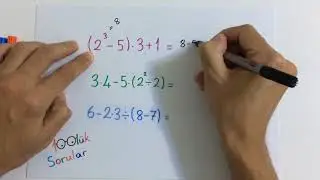 8
(2³-5)·3+1= 8-
3·4-5·(2²÷2)=
6-2·3÷(8-7)=
100lük
Sorular